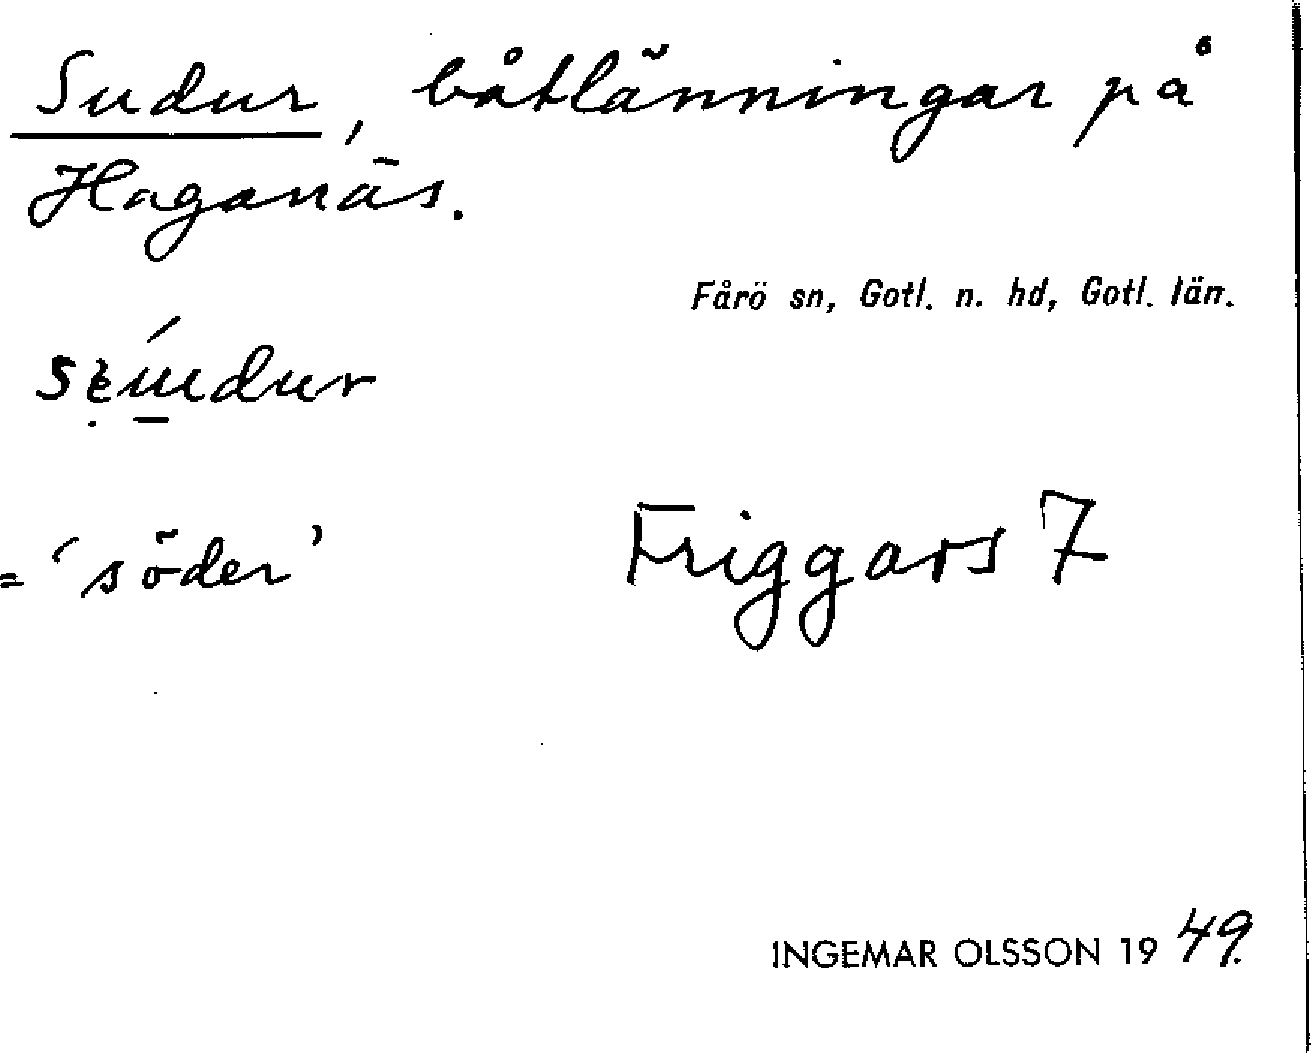 Sudur, båtlänningar på
Haganäs.
Fårö sn, Gotl. n. hd, Gotl. län.
= 'söder'
Friggars 7
INGEMAR OLSSON 1949.